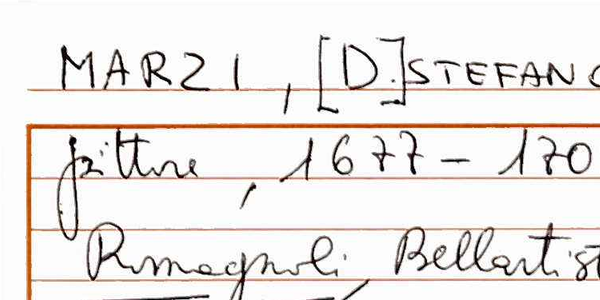 MARZI, [D.] STEFANO
pittore, 1677 - 170
Romagnoli Bellartist